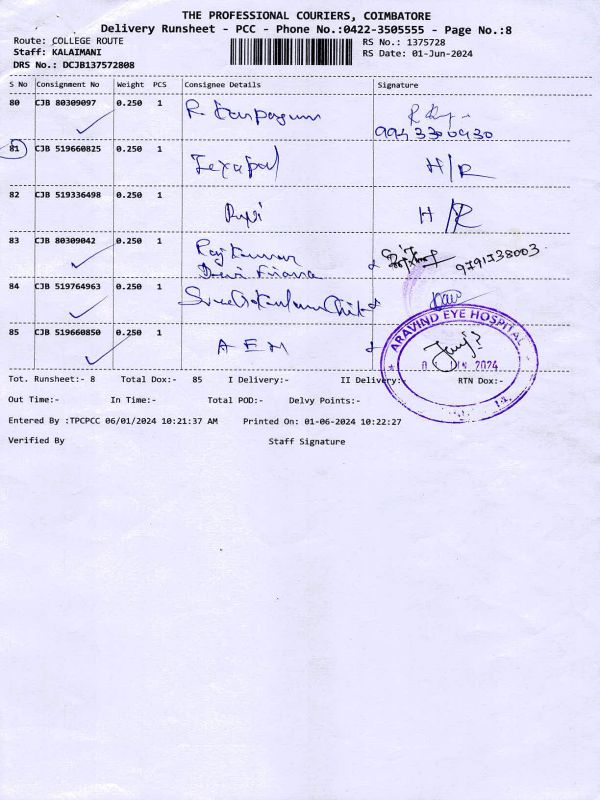 THE PROFESSIONAL COURIERS, COIMBATORE
Delivery Runsheet - PCC - Phone No.:0422-3505555 - Page No.:8
Route: COLLEGE ROUTE RS No.: 1375728
Staff: KALAIMANI RS Date: 01-Jun-2024
DRS No.: DCJB137572808
S No Consignment No Weight PCS Consignee Details Signature
80 CJB 80309097 0.250 1 R
81 CJB 519660825 0.250 1 Texapal H/R
82 CJB 519336498 0.250 1 H/R
83 CJB 80309042 0.250 1 Rajkumar
9791738003
84 CJB 519764963 0.250 1
85 CJB 519660850 0.250 1 A E H
ARAVIND EYE HOSPITAL
2024
Tot. Runsheet:- 8 Total Dox:- 85 I Delivery:- II Delivery:- RTN Dox:-
Out Time:- In Time:- Total POD:- Delvy Points:-
Entered By :TPCPCC 06/01/2024 10:21:37 AM Printed On: 01-06-2024 10:22:27
Verified By Staff Signature